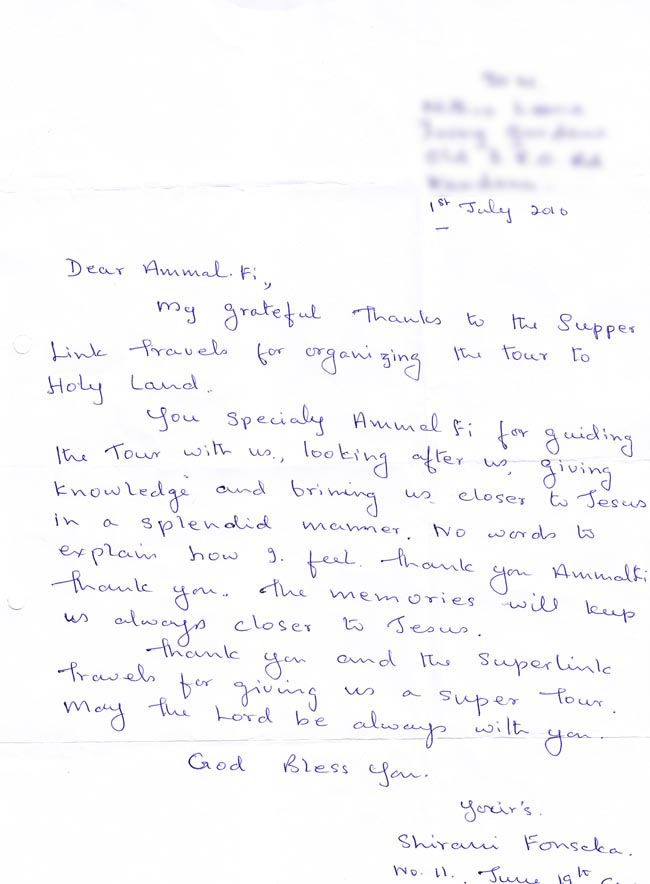 1st July 2010
Dear Ammal. Fi,
My grateful thanks to the Supper
Link travels for organizing the tour to
Holy Land.
You specialy Ammal Fi for guiding
the Tour with us, looking after us, giving
knowledge and brining us closer to Jesus
in a splendid manner. No words to
explain how I. feel. thank you Ammalfi
thank you. the memories will keep
us always closer to Jesus.
thank you and the superlink
travels for giving us a super tour.
May the Lord be always with you.
God Bless You.
Your's.
Shirani Fonseka.
No. 11. June 19th